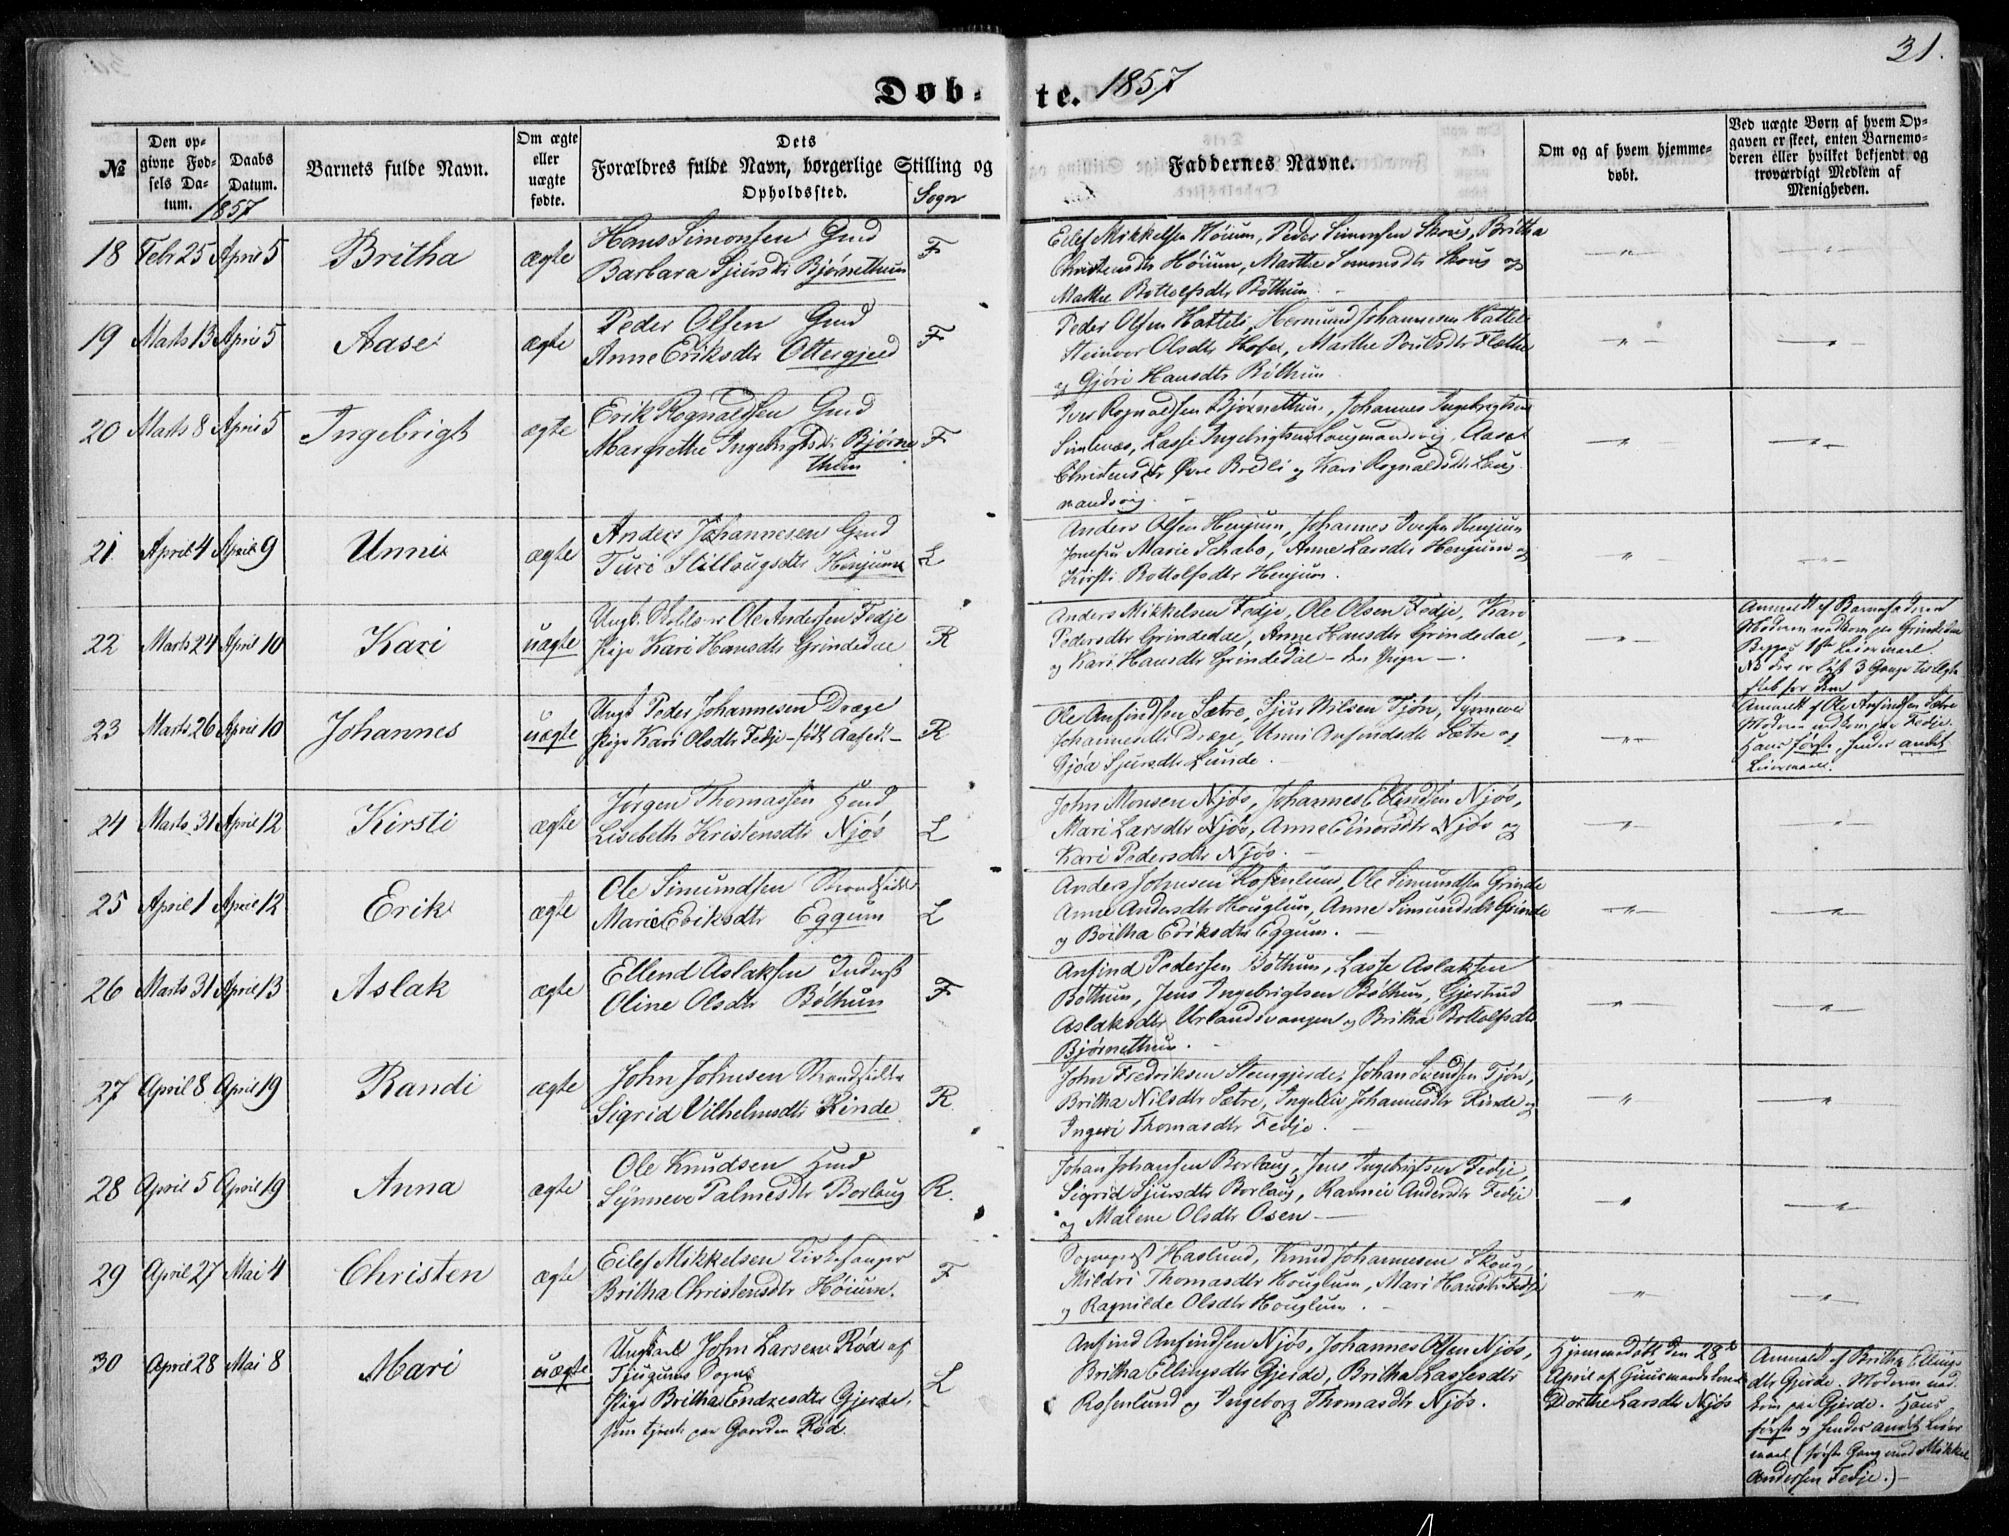 31.
Døb- te. 1857
№
Den op-
givne Fød-
sels Da-
tum.
1857
Daabs
Datum.
Barnets fulde Navn.
Om ægte
eller
uægte
fødte.
Dets
Forældres fulde Navn, borgerlige Stilling og
Opholdssted.
Sogn
Faddernes Navne.
Om og af hvem hjemme-
døbt.
Ved uægte Børn af hvem Op-
gaven er skeet, enten Barnemo-
deren eller hvilket bekjendt og
troværdigt Medlem af
Menigheden.
18 Febr 25 April 5 Britha ægte
Hans Simonsen Gmd
Barbara Sjursdtr Bjørnethun F
Eilef Mikkelsen Høium, Peder Simonsen Skoug, Britha
Christensdtr Høium, Marthe Simonsdtr Skoug og
Marthe Bottolfsdtr Bøthun.
19 Marts 13 April 5 Aase ægte
Peder Olsen Gmd
Anne Eriksdtr Ottergjerd F
Peder Olsen Hatteli, Hermund Johannesen Hatteli
Steinvor Olsdtr Hofer, Marthe Poulsdtr Flathe
og Gjøri Hansdtr Bøthun
20 Marts 8 April 5 Ingebrigt ægte
Erik Rognaldsen Gmd
Margrethe Ingebrigtsdtr Bjørne
thun F
Iver Rognaldsen Bjørnethun, Johannes Ingebrigtsen
Simlenæs, Lasse Ingebrigtsen Lougmandsvig, Aase
Christensdtr Øvre Bredli og Kari Rognaldsdtr Loug
mandsvig.
21. April 4 April 9 Unni ægte
Anders Johannesen Gmd
Turi Stillougsdtr Henjum L
Anders Olsen Henjum, Johannes Iversen Henjum
Jomfru Marie Schabo, Anne Larsdtr Henjum og
Kirsti Bottolfsdtr Henjum.
22 Marts 24 April 10 Kari uægte
Ungk. Ole Andersen Fedje
Pige Kari Hansdtr Grindedal R
Anders Mikkelsen Fedje, Ole Olsen Fedje, Kari
Pedersdtr Grindedal, Anne Hansdtr Grindedal,
og Kari Hansdtr Grindedal - den yngre -.
Anmeldt af Barnefaderen
Moderen nedkom paa Grindedal
Begges 1ste Leiermaal
NB der er lyst 3 Gange til Ægte
skab for dem
23 Marts 26 April 10 Johannes uægte
Ungk Peder Johannesen Dræge
Pige Kari Olsdtr Fedje - R
Ole Anfindsen Sætre, Sjur Nilsen Tjøn, Synneve
Johannesdtr Dræge, Unni Anfindsdtr Sætre og
Gjøa Sjursdtr Lunde.
Anmeldt af Ole Anfindsen Sætre
Moderen nedkom paa Fedje.
Hans første, hendes andet
Leiermaal.
24 Marts 31 April 12 Kirsti ægte
Jørgen Thomassen Hmd
Lisebeth Kristensdtr Njøs L
John Monsen Njøs, Johannes Ellendsen Njøs,
Mari Larsdtr Njøs, Anne Einersdtr Njøs og
Kari Pedersdtr Njøs.
25 April 1 April 12 Erik ægte
Ole Simundsen Strandsidder
Marie Eriksdtr Eggum L
Anders Johnsen Rosenlund, Ole Simundsen Grinde
Anne Andersdtr Houglum, Anne Simundsdtr Grinde
og Britha Eriksdtr Eggum.
26 Marts 31 April 13 Aslak ægte
Ellend Aslaksen Inderst
Oline Olsdtr Bøthun F
Anfind Pedersen Bøthun, Lasse Aslaksen
Bøthun, Jens Ingebrigtsen Bøthun, Gjertrud
Aslaksdtr Urlandsvangen og Britha Bottolfsdtr
Bjørnethun.
27 April 8 April 19 Randi ægte
John Johnsen Strandsidder
Sigrid Vilhelmsdtr Rinde R
John Fredriksen Steengjerde, Johan Svendsen Tjøn,
Britha Nilsdtr Sætre, Ingeleiv Johannesdtr Rinde og
Ingeri Thomasdtr Fedje.
28 April 5 April 19 Anna ægte
Ole Knudsen Hmd
Synneve Palmesdtr Borlaug R.
Johan Johansen Borlaug, Jens Ingebrigtsen Fedje,
Sigrid Sjursdtr Borlaug, Rannei Andersdtr Fedje
og Malene Olsdtr Osen
29 April 27 Mai 4 Christen ægte
Eilef Mikkelsen Kirkesanger
Britha Christensdtr Høium. F
Sogneprest Haslund, Knud Johannesen Skoug,
Mildri Thomasdtr Houglum, Mari Hansdtr Fedje
og Ragnilde Olsdtr Houglum.
30 April 28 Mai 8 Mari uægte
Ungkarl John Larsen Rød af
Tjugums Sogn
Pige Britha Endresdtr Gjerde,
som tjente paa Gaarden Rød. L
Anfind Anfindsen Njøs, Johannes Olsen Njøs,
Britha Ellingsdtr Gjerde, Britha Lassesdtr
Rosenlund og Ingeborg Thomasdtr Njøs.
Hjemmedøbt den 28de
April af Huusmandskone
Dorthe Larsdtr Njøs
Anmeldt af Britha Ellings
dtr Gjerde. Moderen ned
kom paa Gjerde. Hans
første og hendes andet Leier
maal (første Gang med Mikkel
Andersen Fedje.)